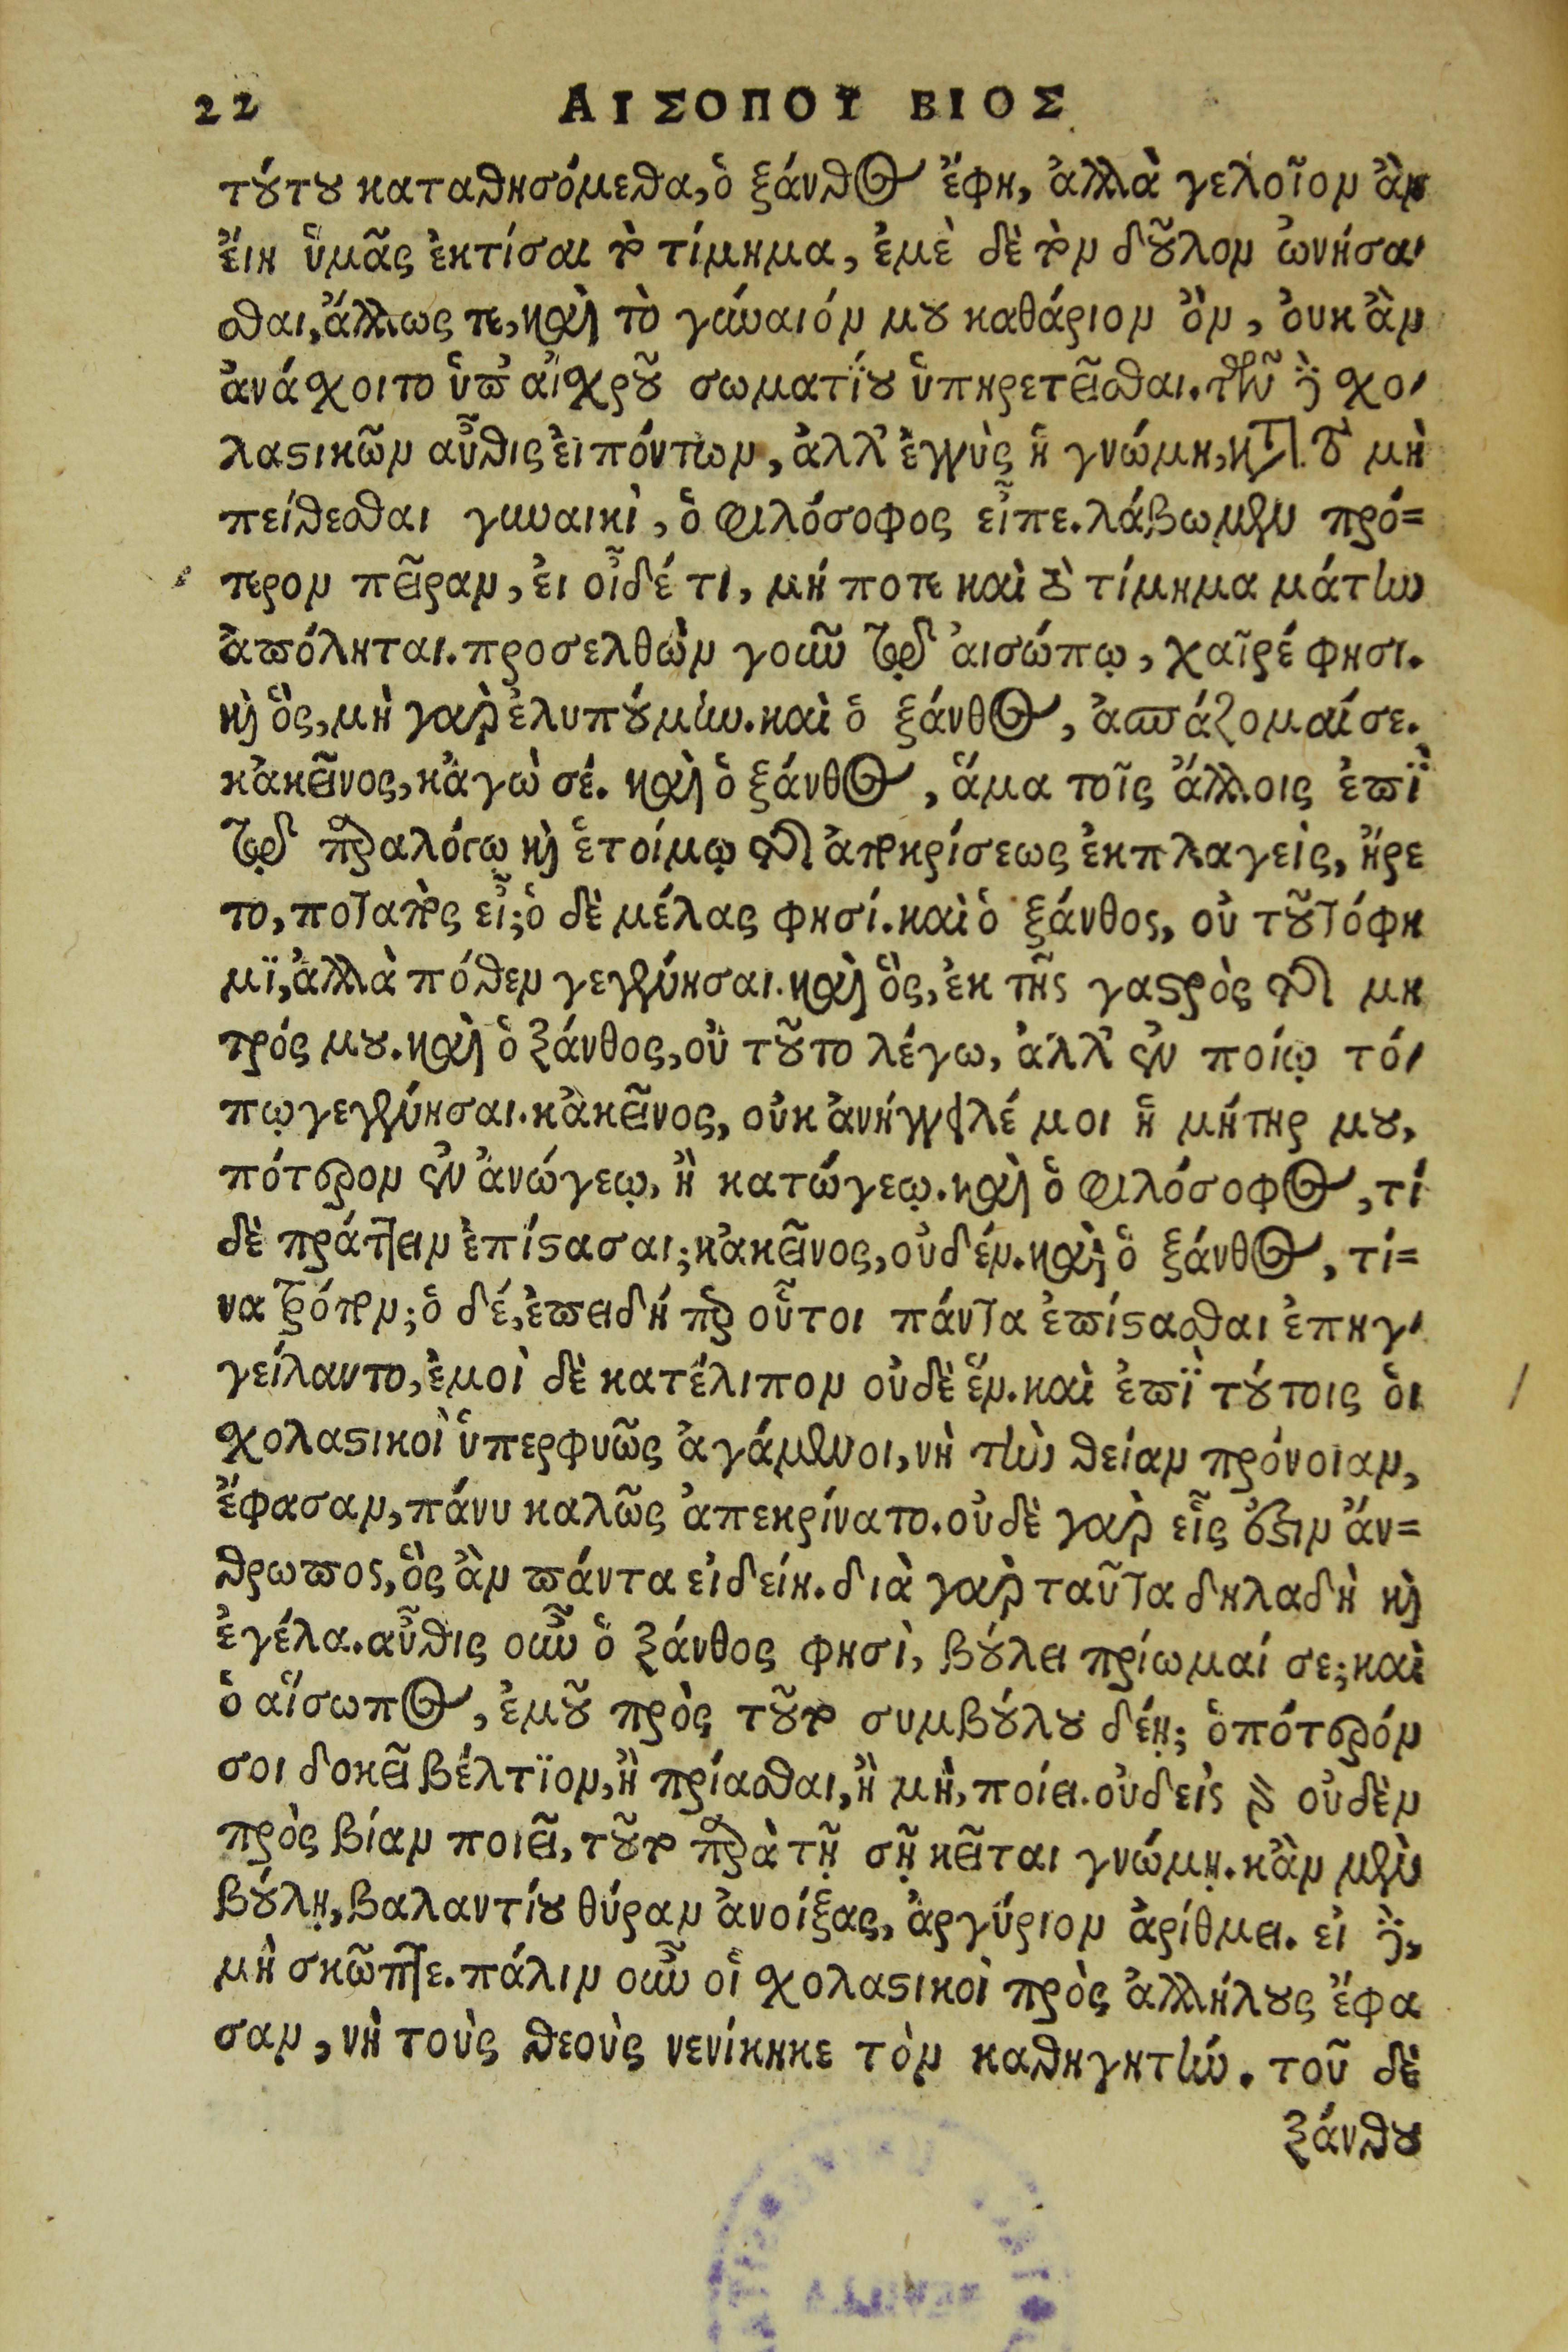 22 ΑΙΣΟΠΟΥ ΒΙΟΣ
τούτου καταθησόμεθα, ὁ ξάνθος ἔφη, ἀλλὰ γελοῖον ἂν
ἔιη ὑμᾶς ἐκτίσαι τὸ τίμημα, ἐμὲ δὲ τὸν δοῦλον ὠνήσα-
σθαι, ἄλλως τε, καὶ τὸ γύναιόν μου καθάριον ὂν, ὀυκ ἂν
ἀνάσχοιτο ὑπ' αἰσχροῦ σωματίου ὑπηρετεῖσθαι. τῶν δὲ σχο-
λαστικῶν αὖθις ἐιπόντων, ἀλλ' ἐγγὺς ἡ γνώμη, κατὰ τοῦ μὴ
πείθεσθαι γυναικὶ, ὁ φιλόσοφος εἶπε. λάβωμεν πρό=
τερον πεῖραν, ἐι οἶδέ τι, μή ποτε καὶ τὸ τίμημα μάτην
ἀπόληται. προσελθὼν γοῦν τῷ ἀισώπῳ, χαῖρέ φησι.
καὶ ὃς, μὴ γὰρ ἐλυπούμην. καὶ ὁ ξάνθος, ἀσπάζομαί σε.
κἀκεῖνος, κἀγὼ σέ. καὶ ὁ ξάνθος, ἅμα τοῖς ἄλλοις ἐπὶ
τῷ παραλόγῳ καὶ ἑτοίμῳ τῆς ἀποκρίσεως ἐκπλαγεὶς, ἤρε
το, ποταπὸς εἶ; ὁ δὲ μέλας φησί. καὶ ὁ ξάνθος, οὐ τοῦτό φη
μϊ, ἀλλὰ πόθεν γεγέννησαι. καὶ ὃς, ἐκ τῆς γαστρὸς τῆς μη
τρός μου. καὶ ὁ ξάνθος, οὐ τοῦτο λέγω, ἀλλ' ἐν ποίῳ τό-
πῳ γεγέννησαι. κἀκεῖνος, οὐκ ἀνήγγειλέ μοι ἡ μήτηρ μου,
πότερον ἐν ἀνώγεῳ, ἢ κατώγεῳ. καὶ ὁ φιλόσοφος, τί
δὲ πράττειν ἐπίστασαι; κἀκεῖνος, οὐδέν. καὶ ὁ ξάνθος, τί=
να τρόπον; ὁ δέ, ἐπειδή περ οὗτοι πάντα ἐπίστασθαι ἐπηγ-
γείλαντο, ἐμοὶ δὲ κατέλιπον οὐδὲ ἕν. καὶ ἐπὶ τούτοις ὁι
σχολαστικοὶ ὑπερφυῶς ἀγάμενοι, νὴ τὴν θείαν πρόνοιαν,
ἔφασαν, πάνυ καλῶς ἀπεκρίνατο. οὐδὲ γὰρ εἷς ἐστιν ἄν=
θρωπος, ὃς ἂν πάντα εἰδείη. διὰ γὰρ ταῦτα δηλαδὴ καὶ
ἐγέλα. αὖθις οὖν ὁ ξάνθος φησὶ, βούλει πρίωμαί σε; καὶ
ὁ αἴσωπος, ἐμοῦ πρὸς τοῦτο συμβούλου δέῃ; ὁπότερόν
σοι δοκεῖ βέλτϊον, ἢ πρίασθαι, ἢ μὴ, ποίει. οὐδεὶς γὰρ οὐδὲν
πρὸς βίαν ποιεῖ, τοῦτο παρὰ τῇ σῇ κεῖται γνώμῃ. κἂν μὲν
βούλῃ, βαλαντίου θύραν ἀνοίξας, ἀργύριον ἀρίθμει. εἰ δὲ,
μὴ σκῶπτε. πάλιν οὖν οἱ σχολαστικοὶ πρὸς ἀλλήλους ἔφα
σαν, νὴ τοὺς θεοὺς νενίκηκε τὸν καθηγητήν. τοῦ δὲ
ξάνθου